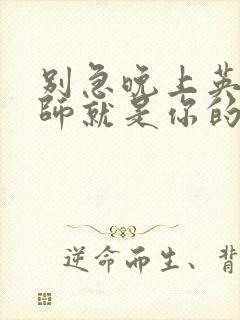 别急晚上英
师就是你的
逆命而生、背